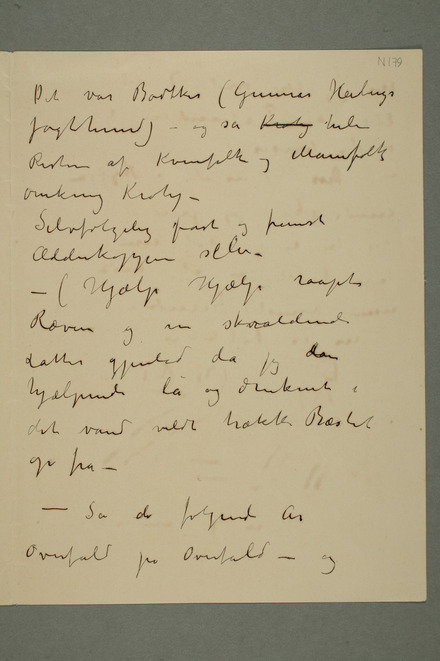 N 179
Det var Bødtker (Gunnar Heibergs
Jagthund) – og så Krohg hele
Resten af Kvindfolk og Mandfolk
omkring Krohg –
Selvfølgelig først og fremst
Ædderkoppen selv –
– ( Hjælp Hjælp raabte
Ræven og en skraldende
Latter gjenlød da jeg den
hjælpende lå og druknet i
det vand vildt trække Bæstet
op fra –
– Så de følgende År
Overfald på Overfald – og